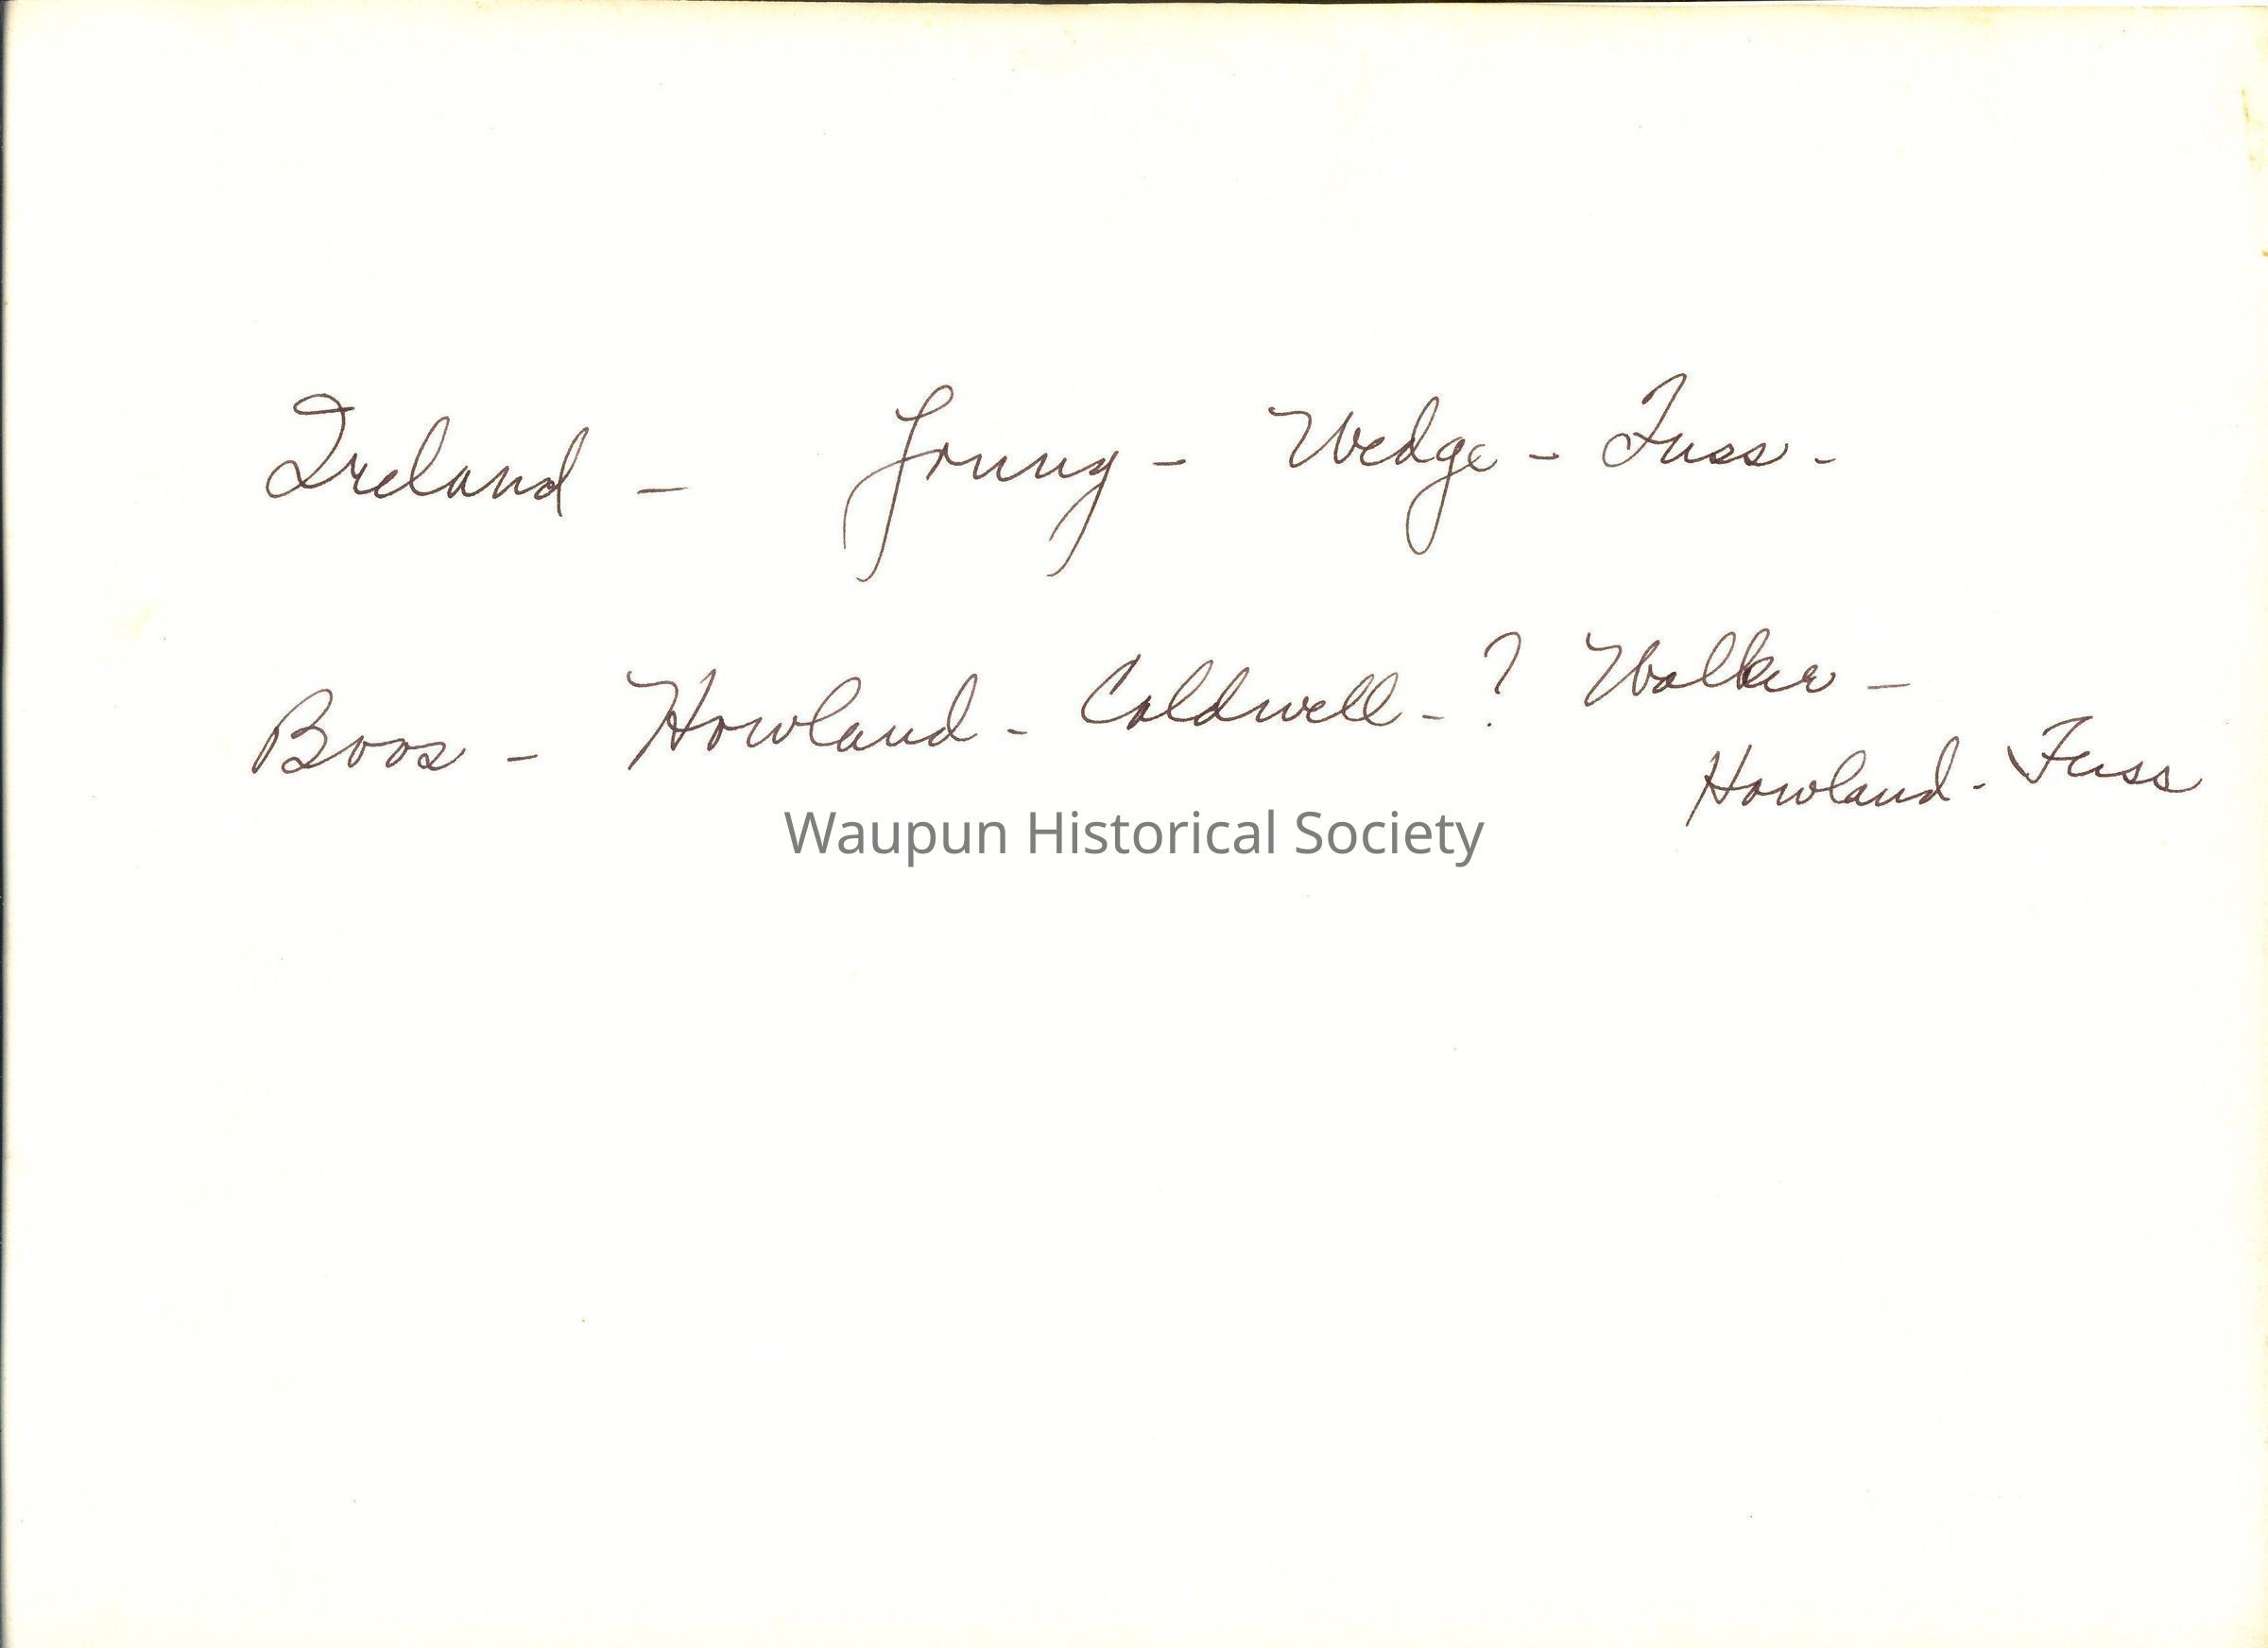 Ireland – Young - Wedge - Fuss -
Boos - Howland - Caldwell - ? Walker -
Howland - Fuss
Waupun Historical Society